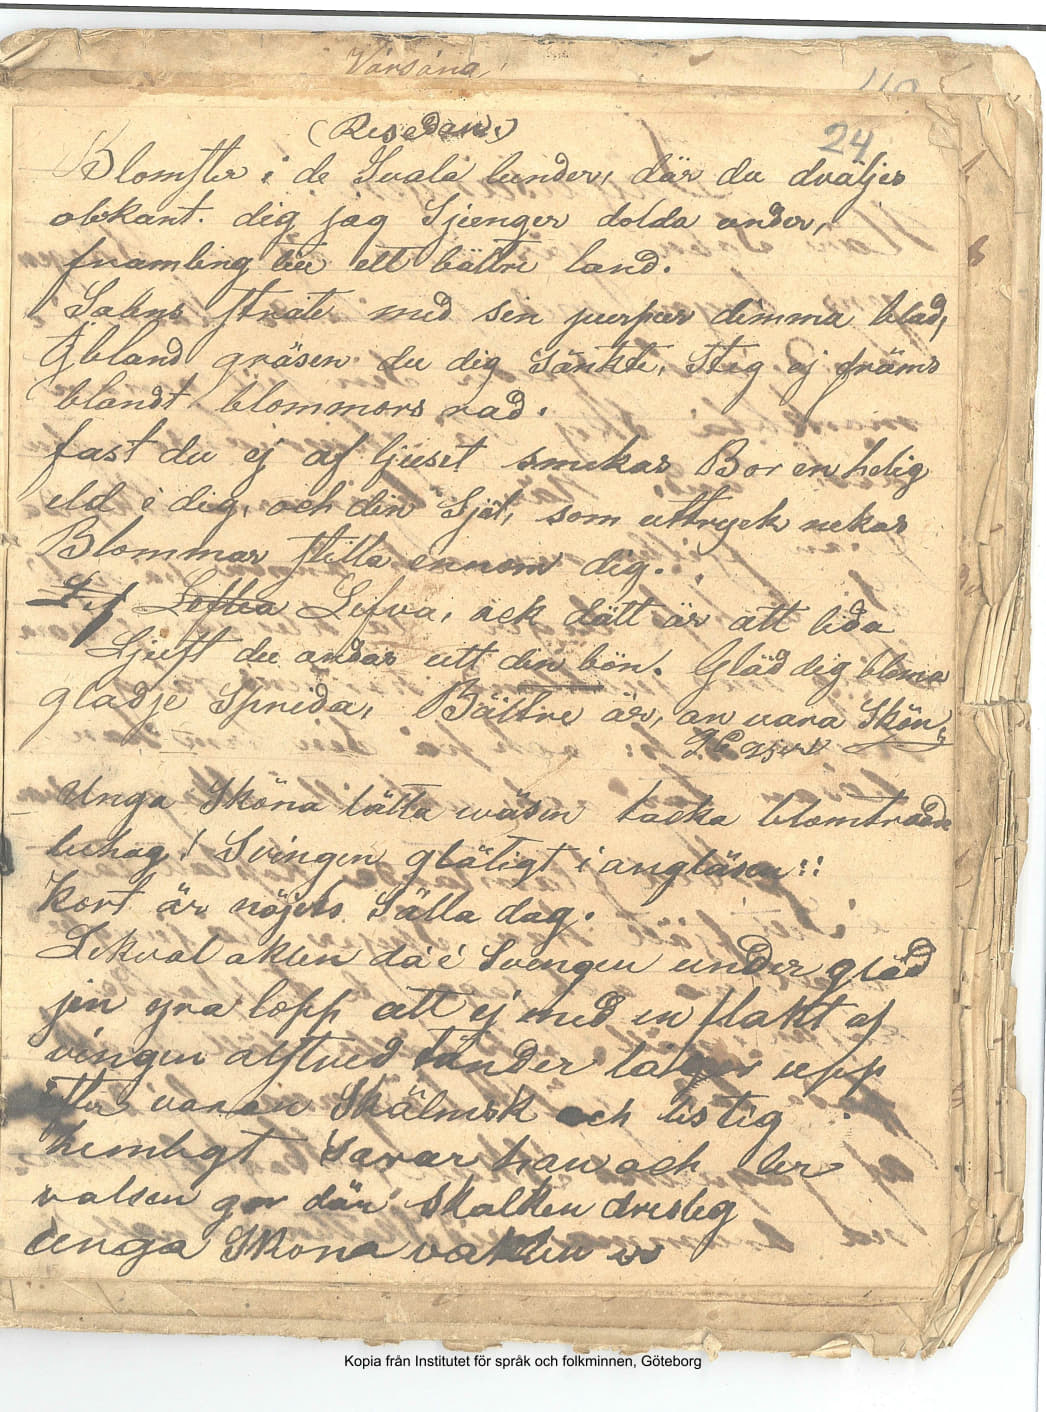 Vårsång
(Resedan.)
24
Blomster i de Svala lunder, där du dväljes
obekant. dig jag Sjunger dolda under,
framling liu ett bättre land.
Solens stråle med sin purpur dimma blad,
bland gräsen du dig Sänkte, Steg ej främs
blandt blommors rad.
fast du ej af ljuset smekas Bor en helig
eld i dig, och din Själ, som uttryck nekas
Blommar stilla ennom dig.
Lefva, ack dätt är att lida
Ljuft du andas utt din bön. Gläd dig bloma
gladje Sprida, Bättre är, an vara Skön
Unga Sköna lätta wäsen tacka blomtradn
behag! Svingen glätigt i angläsen::
Kort är nöjets Sälla dag.
Lekval akten då é Svengen under gläd
jen yra lopp att ej med en flakt af
vingen alstued tänder lågor upp
ty varen Skälmsk och listig
hemligt Sarar han och ler
valsen gor där Skalken dristig
unga Skona vakten er
Kopia från Institutet för språk och folkminnen, Göteborg